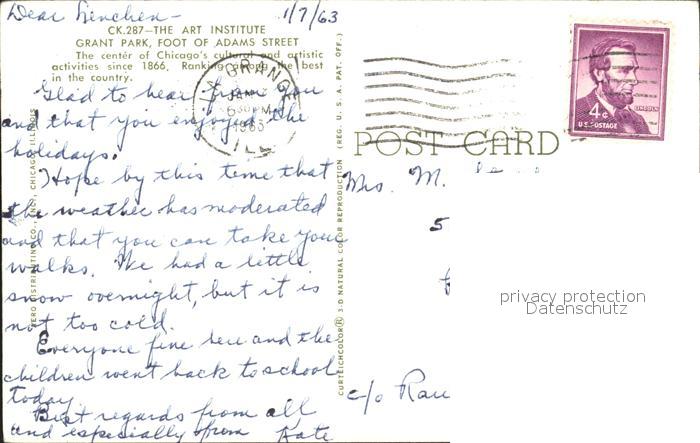 Dear Linchen - 1/7/63
CK.287—THE ART INSTITUTE
GRANT PARK, FOOT OF ADAMS STREET
The center of Chicago's cultural and artistic
activities since 1866. Ranking among the best
in the country.
Glad to hear from you
and that you enjoyed the
holidays.
Hope by this time that
the weather has moderated
and that you can take your
walks. We had a little
snow overnight, but it is
not too cold.
Everyone fine here and the
children went back to school
today.
Best regards from all
and especially from Kate
GRANG
JAN 7
630 PM
1963
ILL
CURTEICHCOLOR® 3-D NATURAL COLOR REPRODUCTION (REG. U.S.A. PAT. OFF.)
POST CARD
4¢
LINCOLN
U.S. POSTAGE
Mrs. M.
5
privacy protection
Datenschutz
c/o Rau